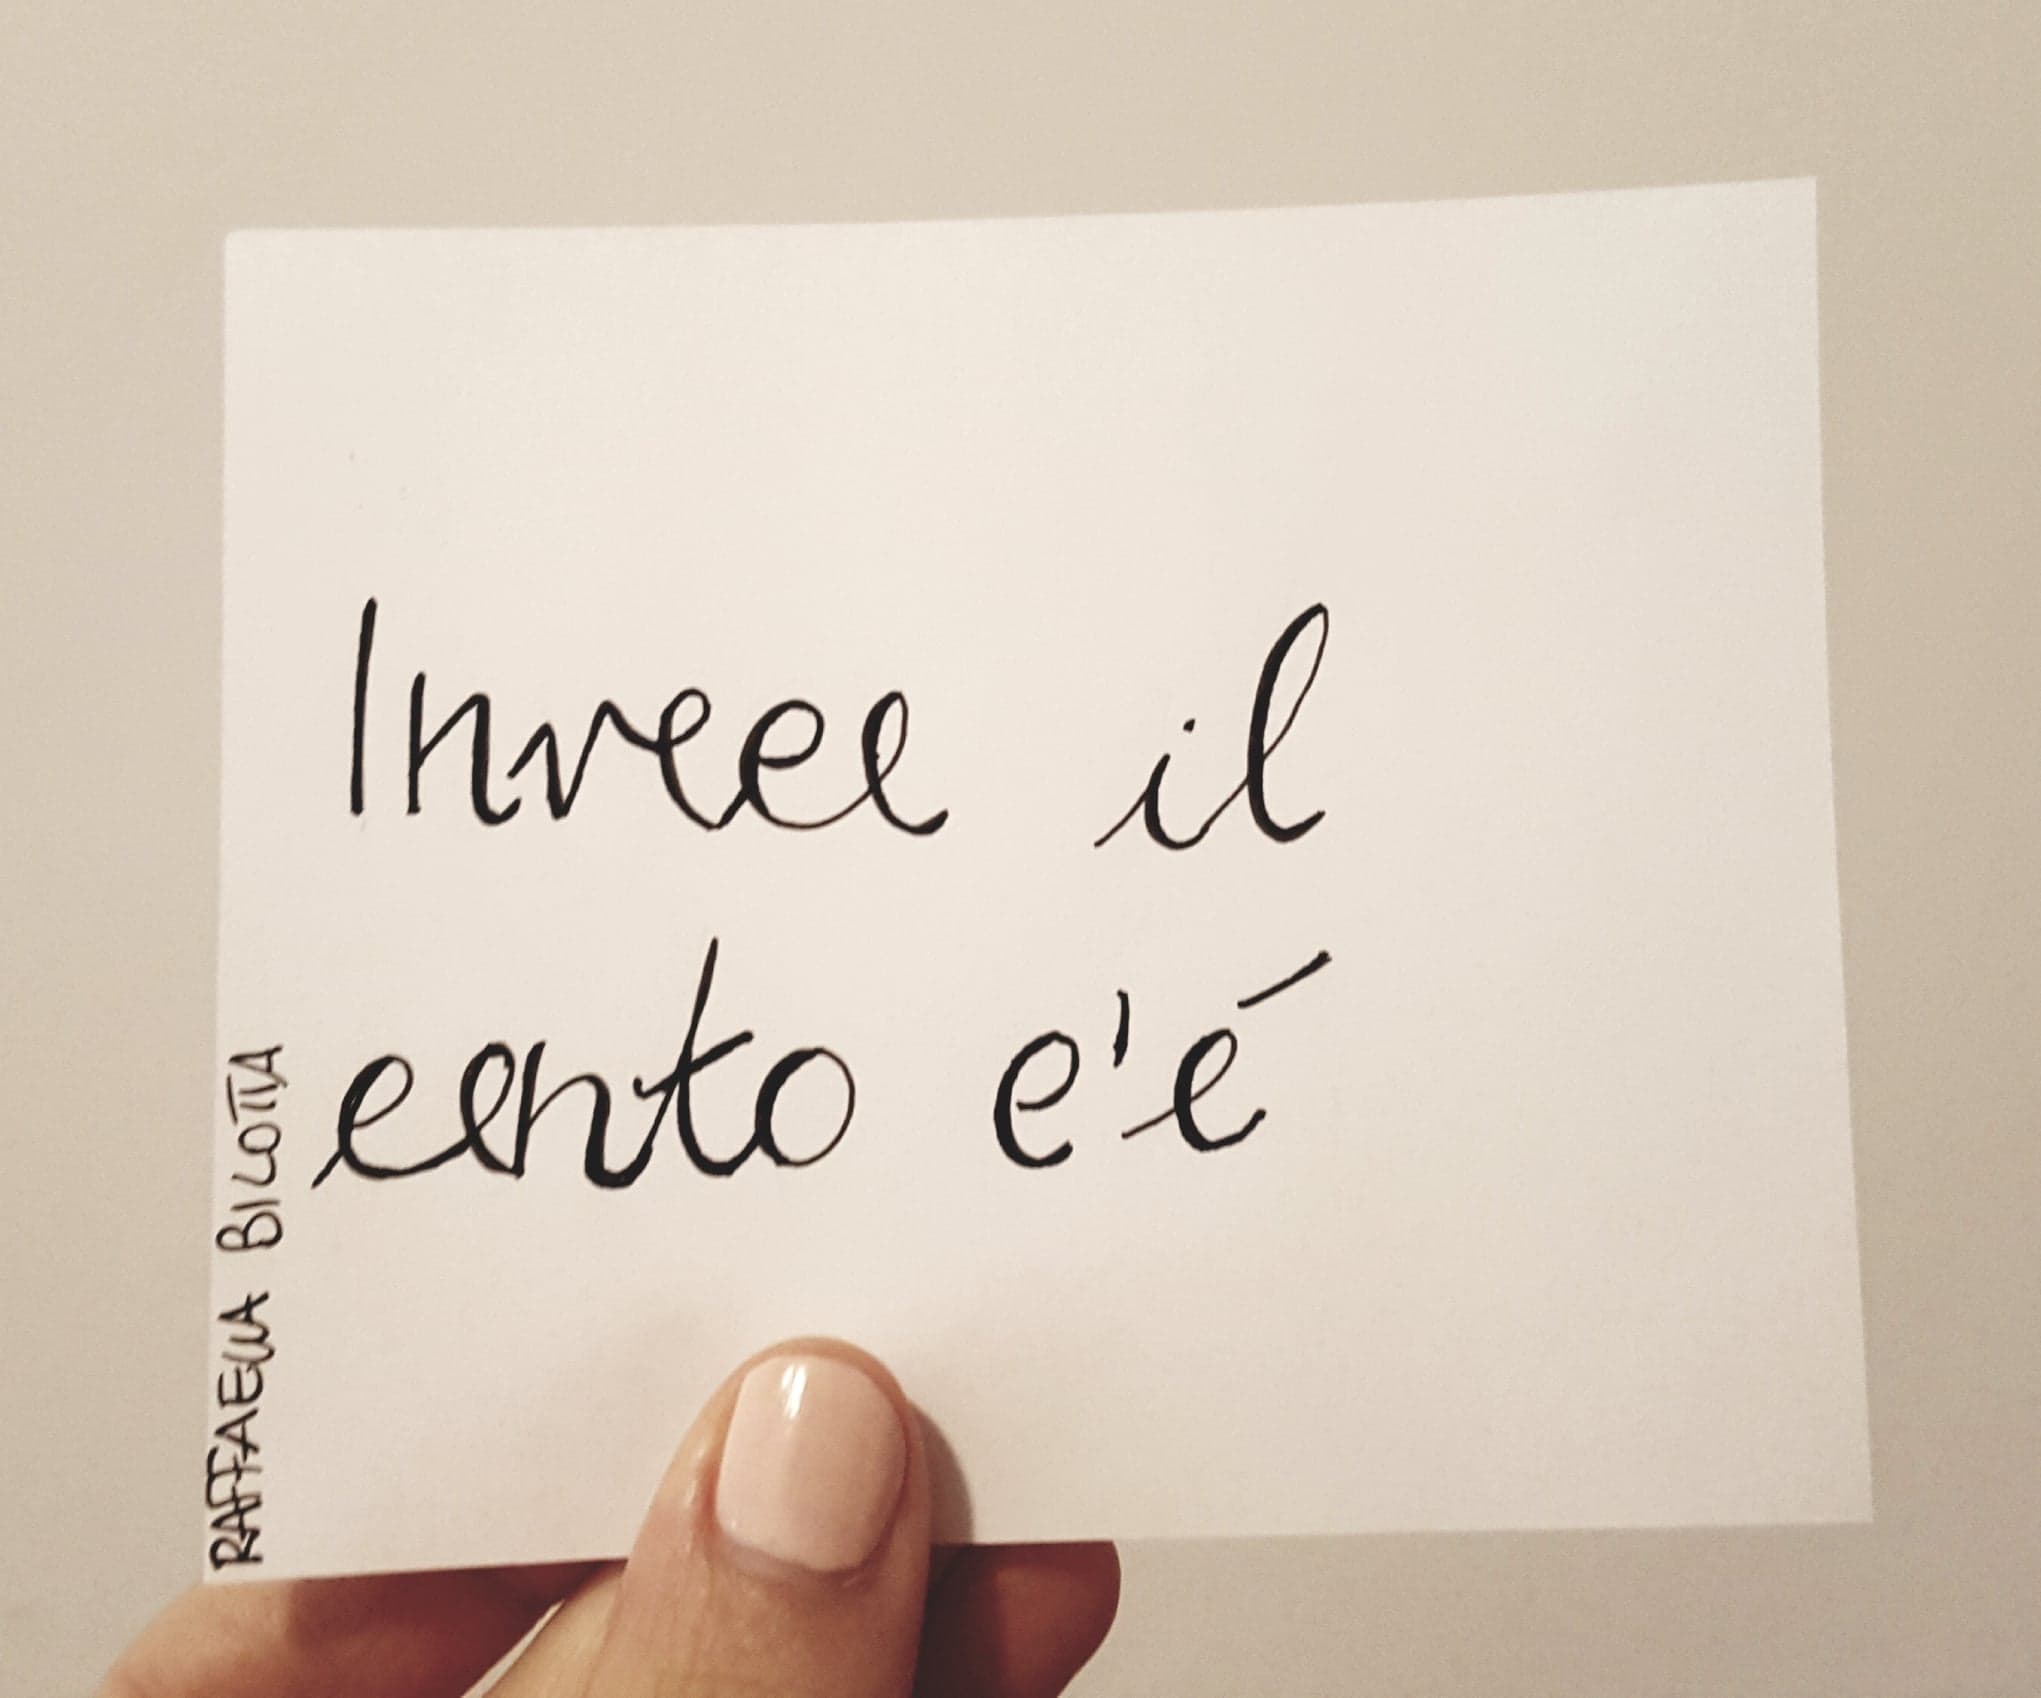 Invece il
cento c'é
RAFFAELLA BILOTTA